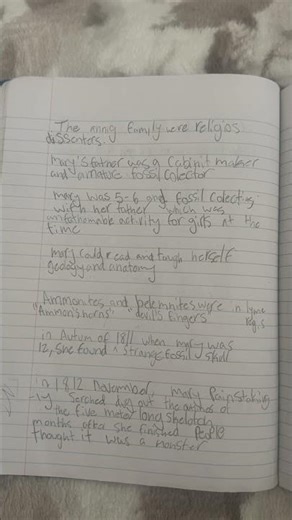 The Aning family were religios
dissenters.
Mary's father was a Cabinit maker
and amature fossil colector
Mary was 5-6 and fossil colecting
with her father which was
unfathomable activity for girls at the
time
mary could read and taugh herself
geology and anatomy
Ammonites and belemnites were in lyme
"Ammon's horns" "devil's fingers" Regis
in Autum of 1811 when mary was
12, she found ^ strange fossil skull
in 1812 November, Mary Painstaking
-ly Serched dug out the of
the five meter long skeleton
months after she finished. People
thought it was a monster